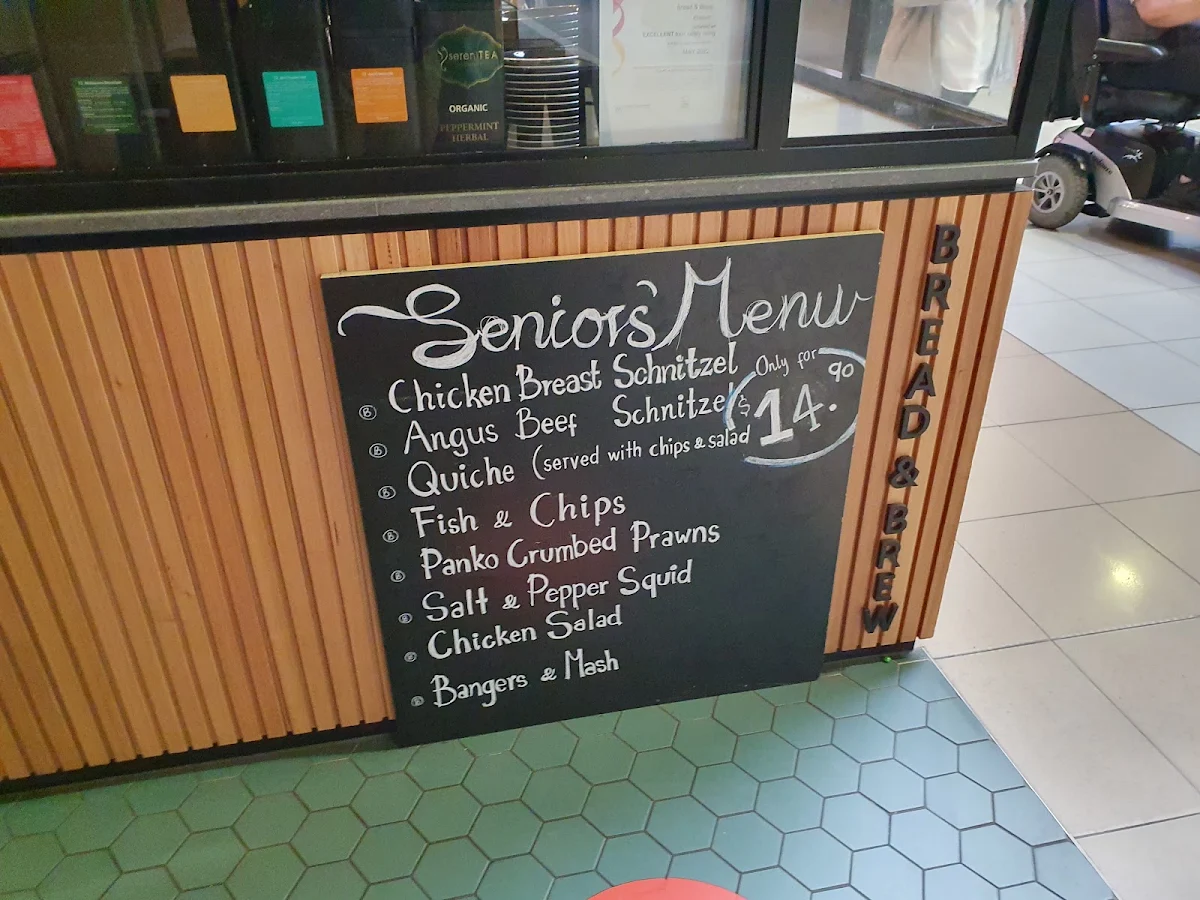 sereniTEA
ORGANIC
PEPPERMINT
HERBAL
EXCELLENT
Seniors' Menu
Only for
$14.90
Ⓑ Chicken Breast Schnitzel
Ⓑ Angus Beef Schnitzel
Ⓑ Quiche (served with chips & salad
Ⓑ Fish & Chips
Ⓑ Panko Crumbed Prawns
Ⓑ Salt & Pepper Squid
Ⓑ Chicken Salad
Ⓑ Bangers & Mash
BREAD & BREW